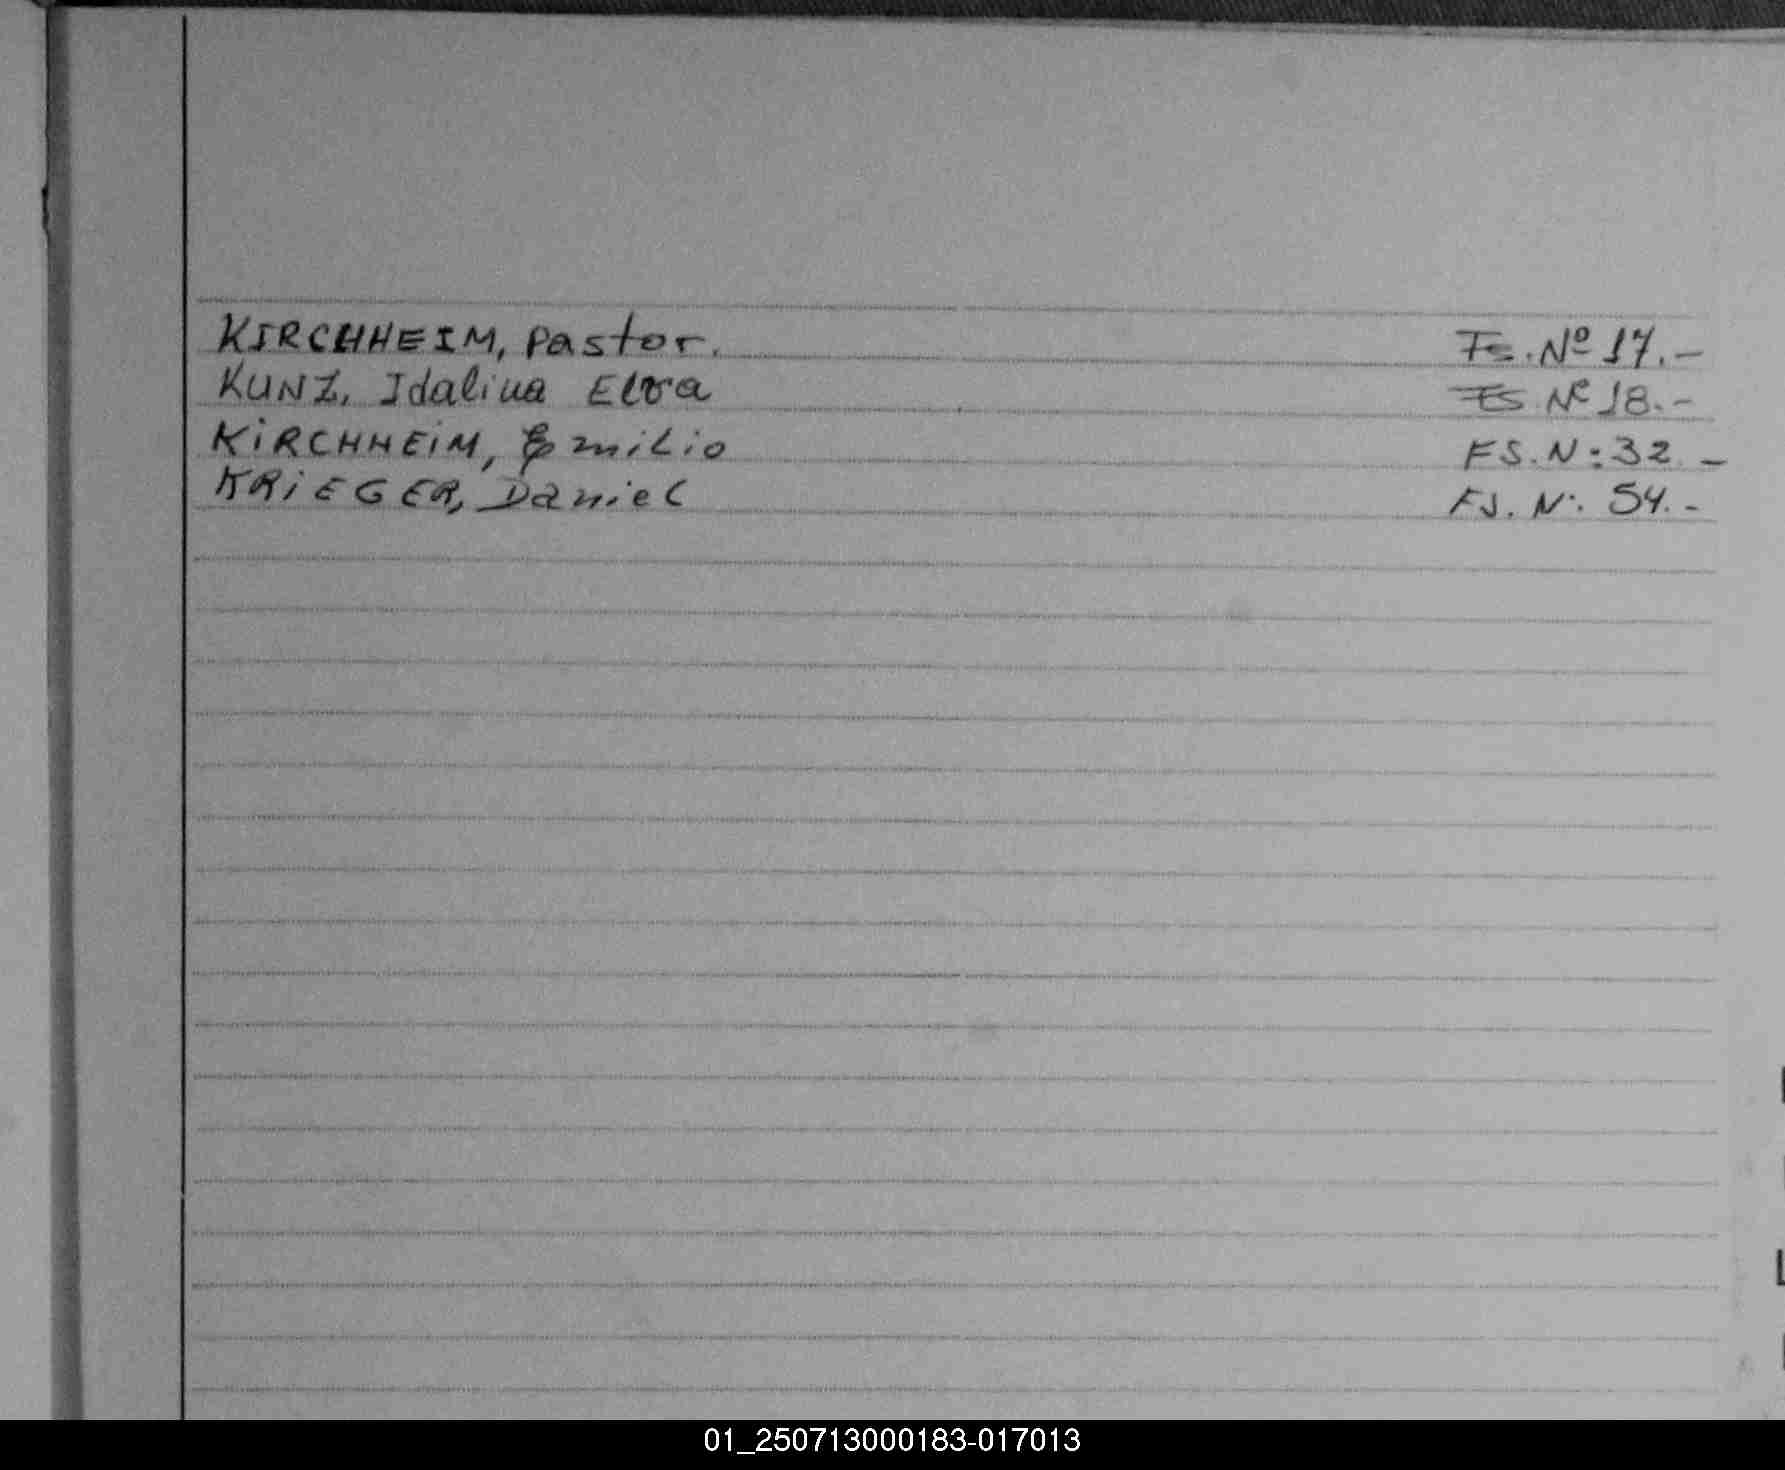 KIRCHHEIM, Pastor. Fs. Nº 17.-
KUNZ, Idalina Elva Fs Nº 18.-
KiRCHHEiM, Emilio FS. N: 32.-
KRiEGER, Daniel FS. N: 54.-
01_250713000183-017013